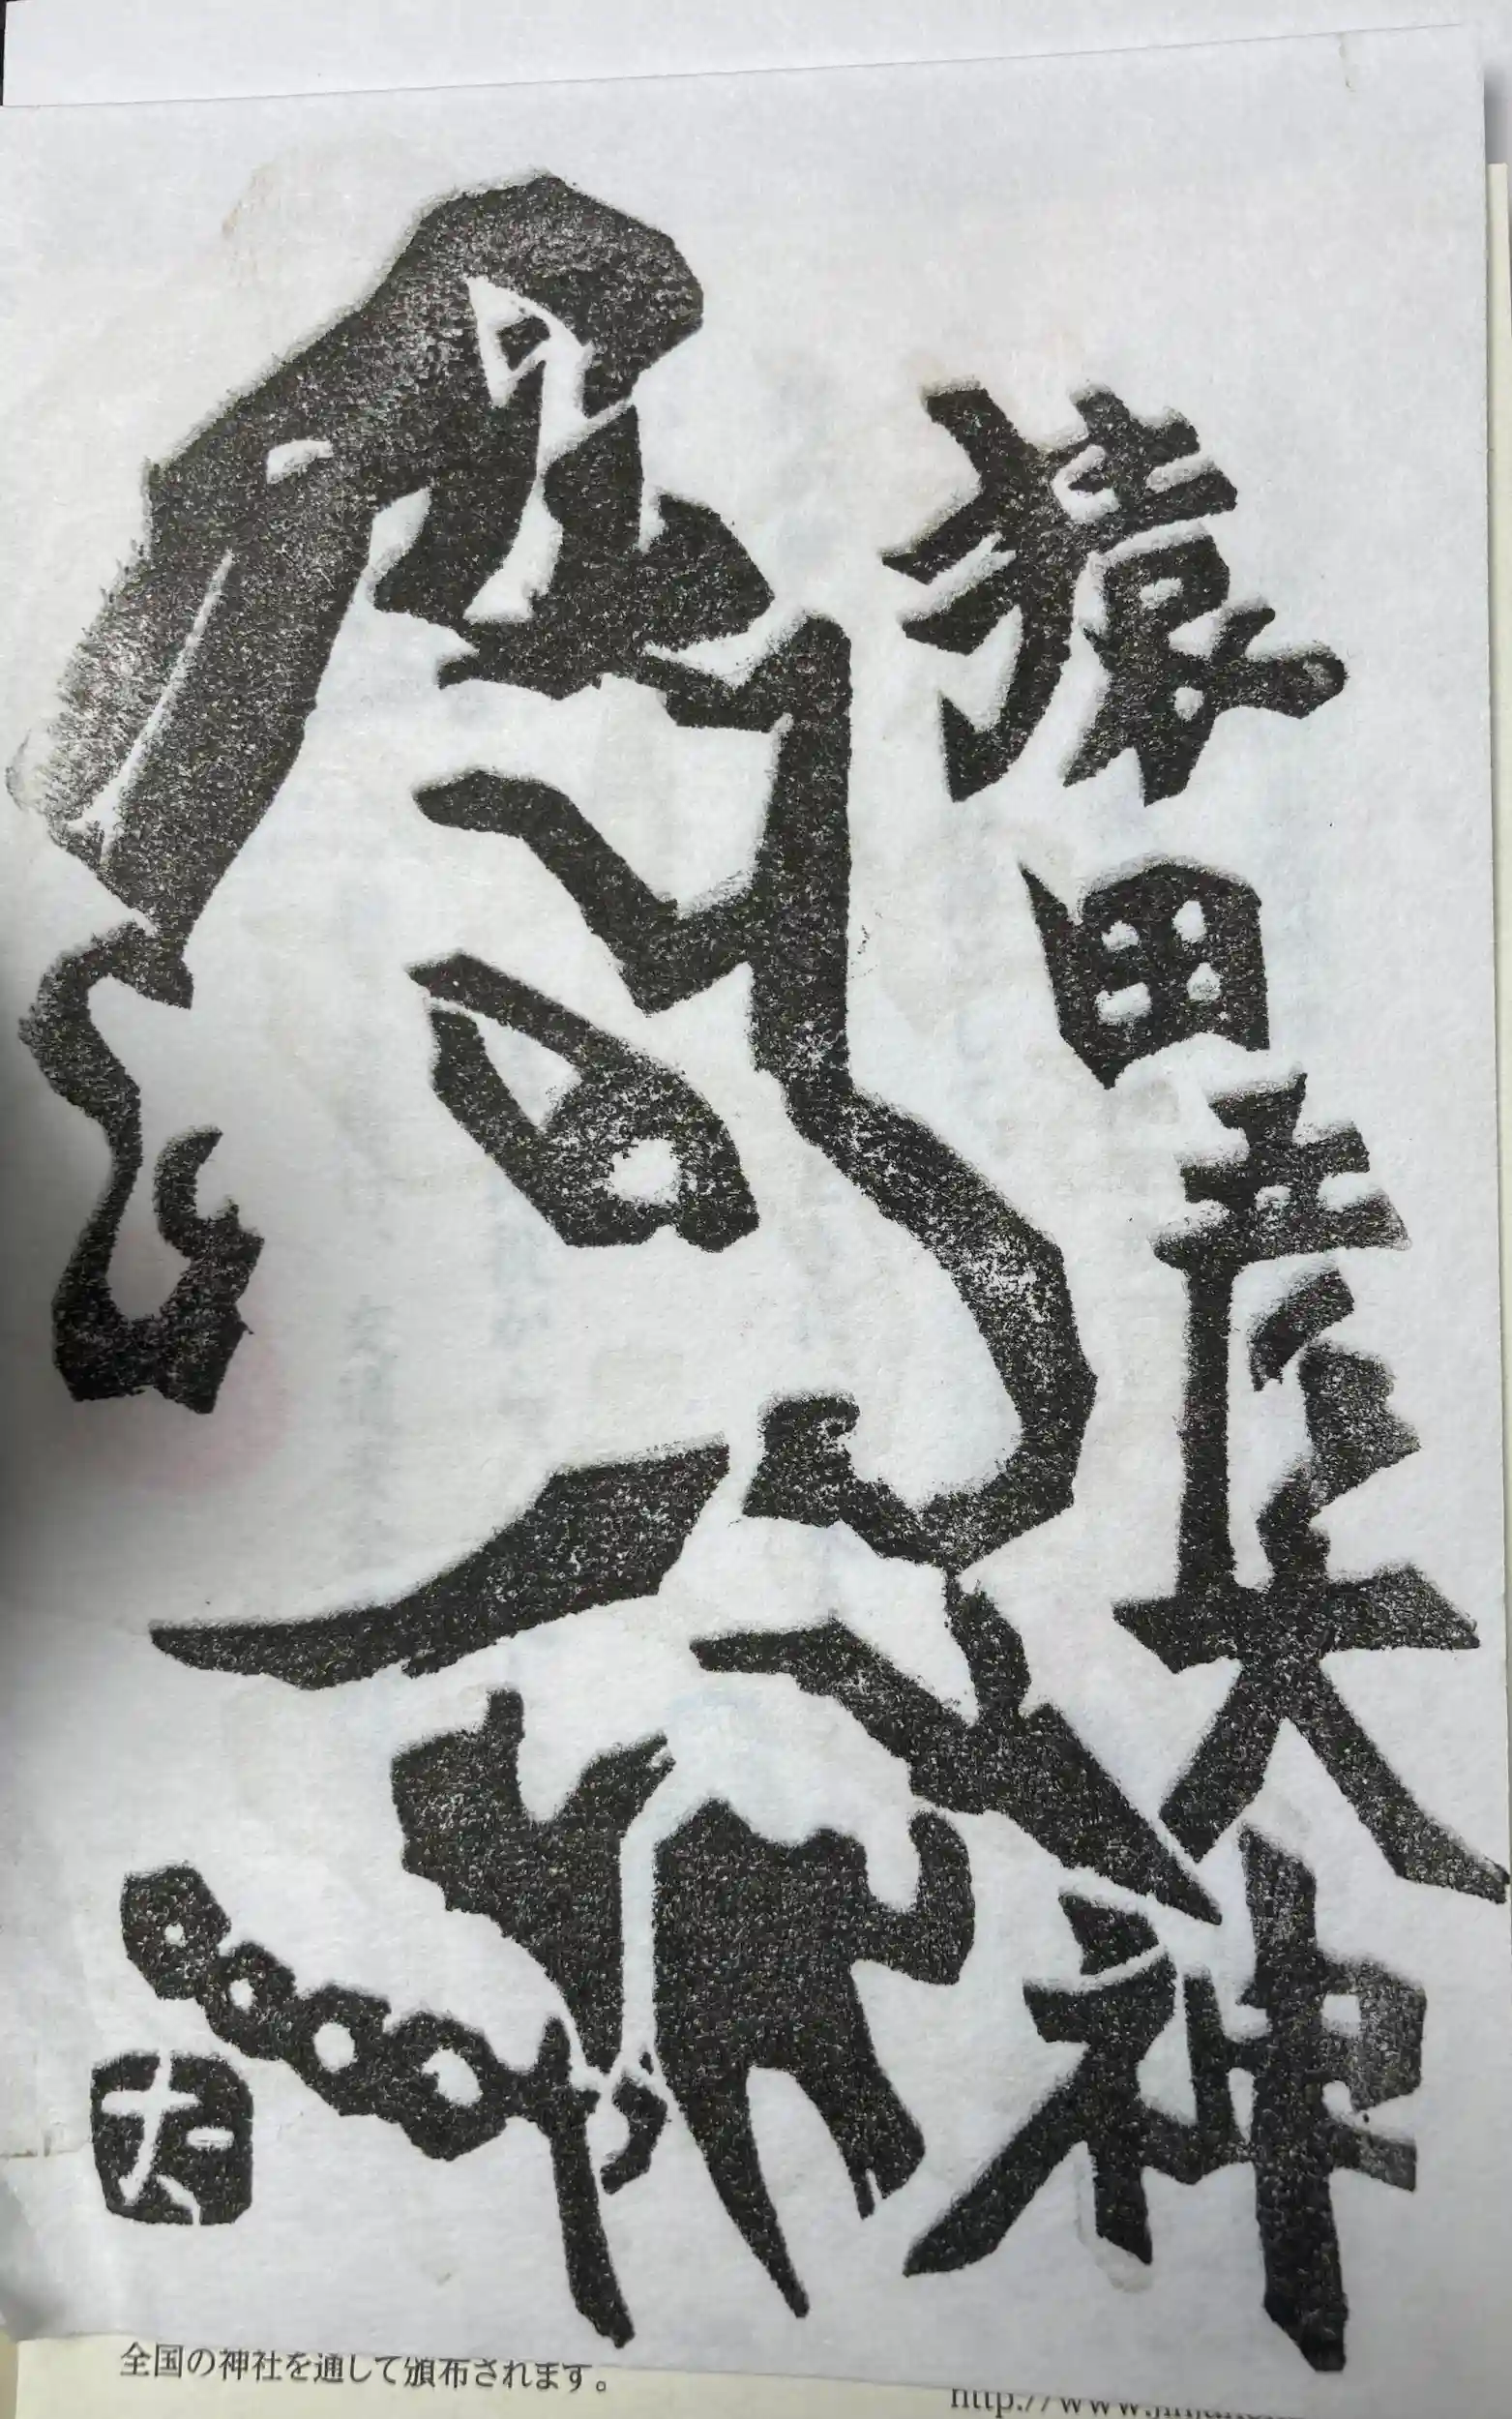 猿田彦大神
全国の神社を通して頒布されます。
http://www.jinja